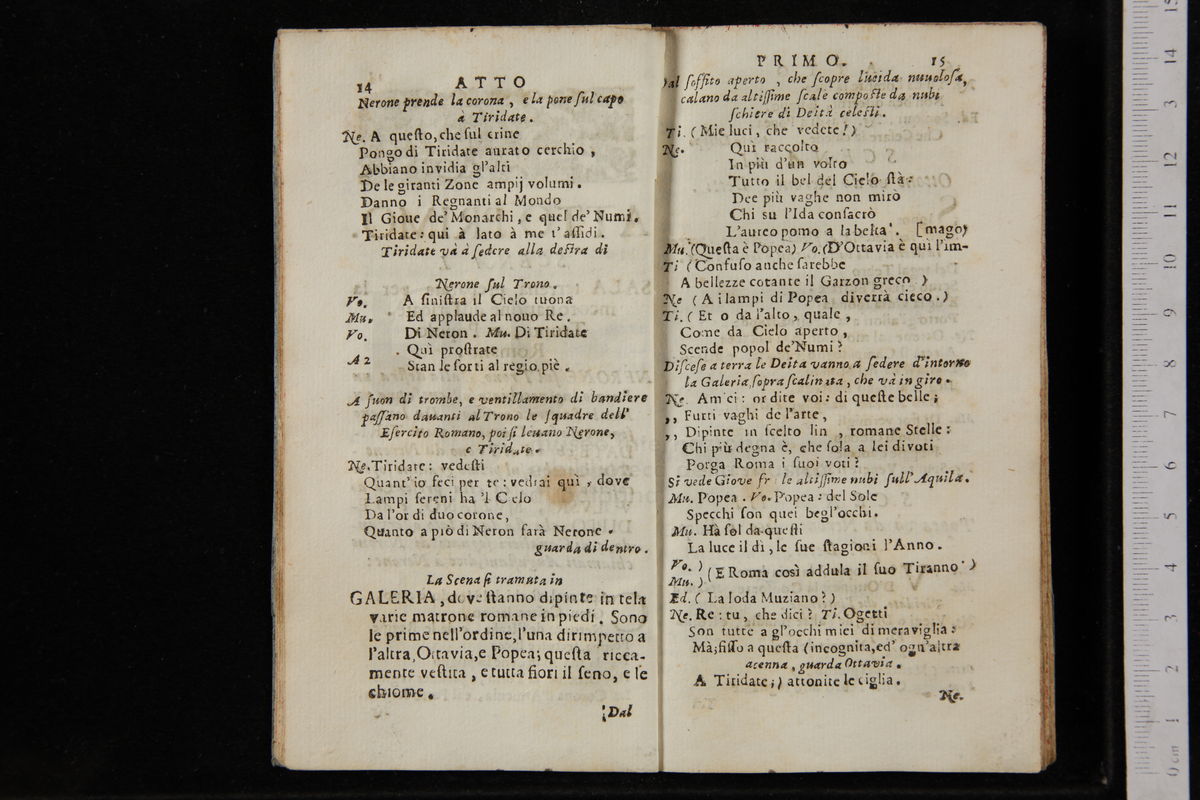 14 ATTO
Nerone prende la corona, e la pone ſul capo
à Tiridate.
Ne. A queſto, che ſul crine
Pongo di Tiridate aurato cerchio,
Abbiano invidia gl'alti
De le giranti Zone ampij volumi.
Danno i Regnanti al Mondo
Il Gioue de' Monarchi, e quel de' Numi.
Tiridate: qui à lato à me t'aſſidi.
Tiridate và à ſedere alla deſtra di
Nerone ſul Trono.
Vo. A ſiniſtra il Cielo tuona
Mu. Ed applaude al nouo Re.
Vo. Di Neron. Mu. Di Tiridate
A 2 Quì proſtrate
Stan le forti al regio piè.
A ſuon di trombe, e ventillamento di bandiere
paſſano dauanti al Trono le ſquadre dell'
Eſercito Romano, poi ſi leuano Nerone,
e Tiridate.
Ne. Tiridate: vedeſti
Quant' io feci per te: vedrai quì, dove
Lampi ſereni ha 'l Cielo
Da l'or di duo corone,
Quanto a piò di Neron farà Nerone.
guarda di dentro.
La Scena ſi tramuta in
GALERIA, dove ſtanno dipinte in tela
varie matrone romane in piedi. Sono
le prime nell'ordine, l'una dirimpetto a
l'altra, Ottavia, e Popea; queſta ricca-
mente veſtita, e tutta fiori il ſeno, e le
chiome.
Dal
PRIMO. 15
Dal ſoffito aperto, che ſcopre lucida nuuoloſa,
calano da altiſſime ſcale compoſte da nubi
ſchiere di Deità celeſti.
Ti. (Mie luci, che vedete!)
Ne. Quì raccolto
In più d'un volto
Tutto il bel del Cielo ſtà:
Dee più vaghe non mirò
Chi su l'Ida conſacrò
L'aureo pomo a la beltà. [mago)
Mu. (Queſta è Popea) Vo. (D'Ottavia è quì l'im-
Ti (Confuſo anche ſarebbe
A bellezze cotante il Garzon greco)
Ne (A i lampi di Popea diverrà cieco.)
Ti. (Et o da l'alto, quale,
Come da Cielo aperto,
Scende popol de' Numi?
Diſceſe a terra le Deità vanno a ſedere d'intorno
la Galeria ſopra ſcalinata, che và in giro.
Ne. Amici: or dite voi: di queſte belle;
,, Furti vaghi de l'arte,
,, Dipinte in ſcelto lin, romane Stelle:
Chi più degna è, che ſola a lei divoti
Porga Roma i ſuoi voti?
Si vede Giove fr le altiſſime nubi ſull' Aquila.
Mu. Popea. Vo. Popea: del Sole
Specchi ſon quei begl'occhi.
Mu. Hà ſol da queſti
La luce il dì, le ſue ſtagioni l'Anno.
Vo. )
Mu. ) (E Roma così addula il ſuo Tiranno)
Ed. (La loda Muziano?)
Ne. Re: tu, che dici? Ti. Ogetti
Son tutte a gl'occhi miei di meraviglia:
Mà; fiſſo a queſta (incognita, ed' ogn'altra
acenna, guarda Ottavia.
A Tiridate;) attonite le ciglia.
Ne.